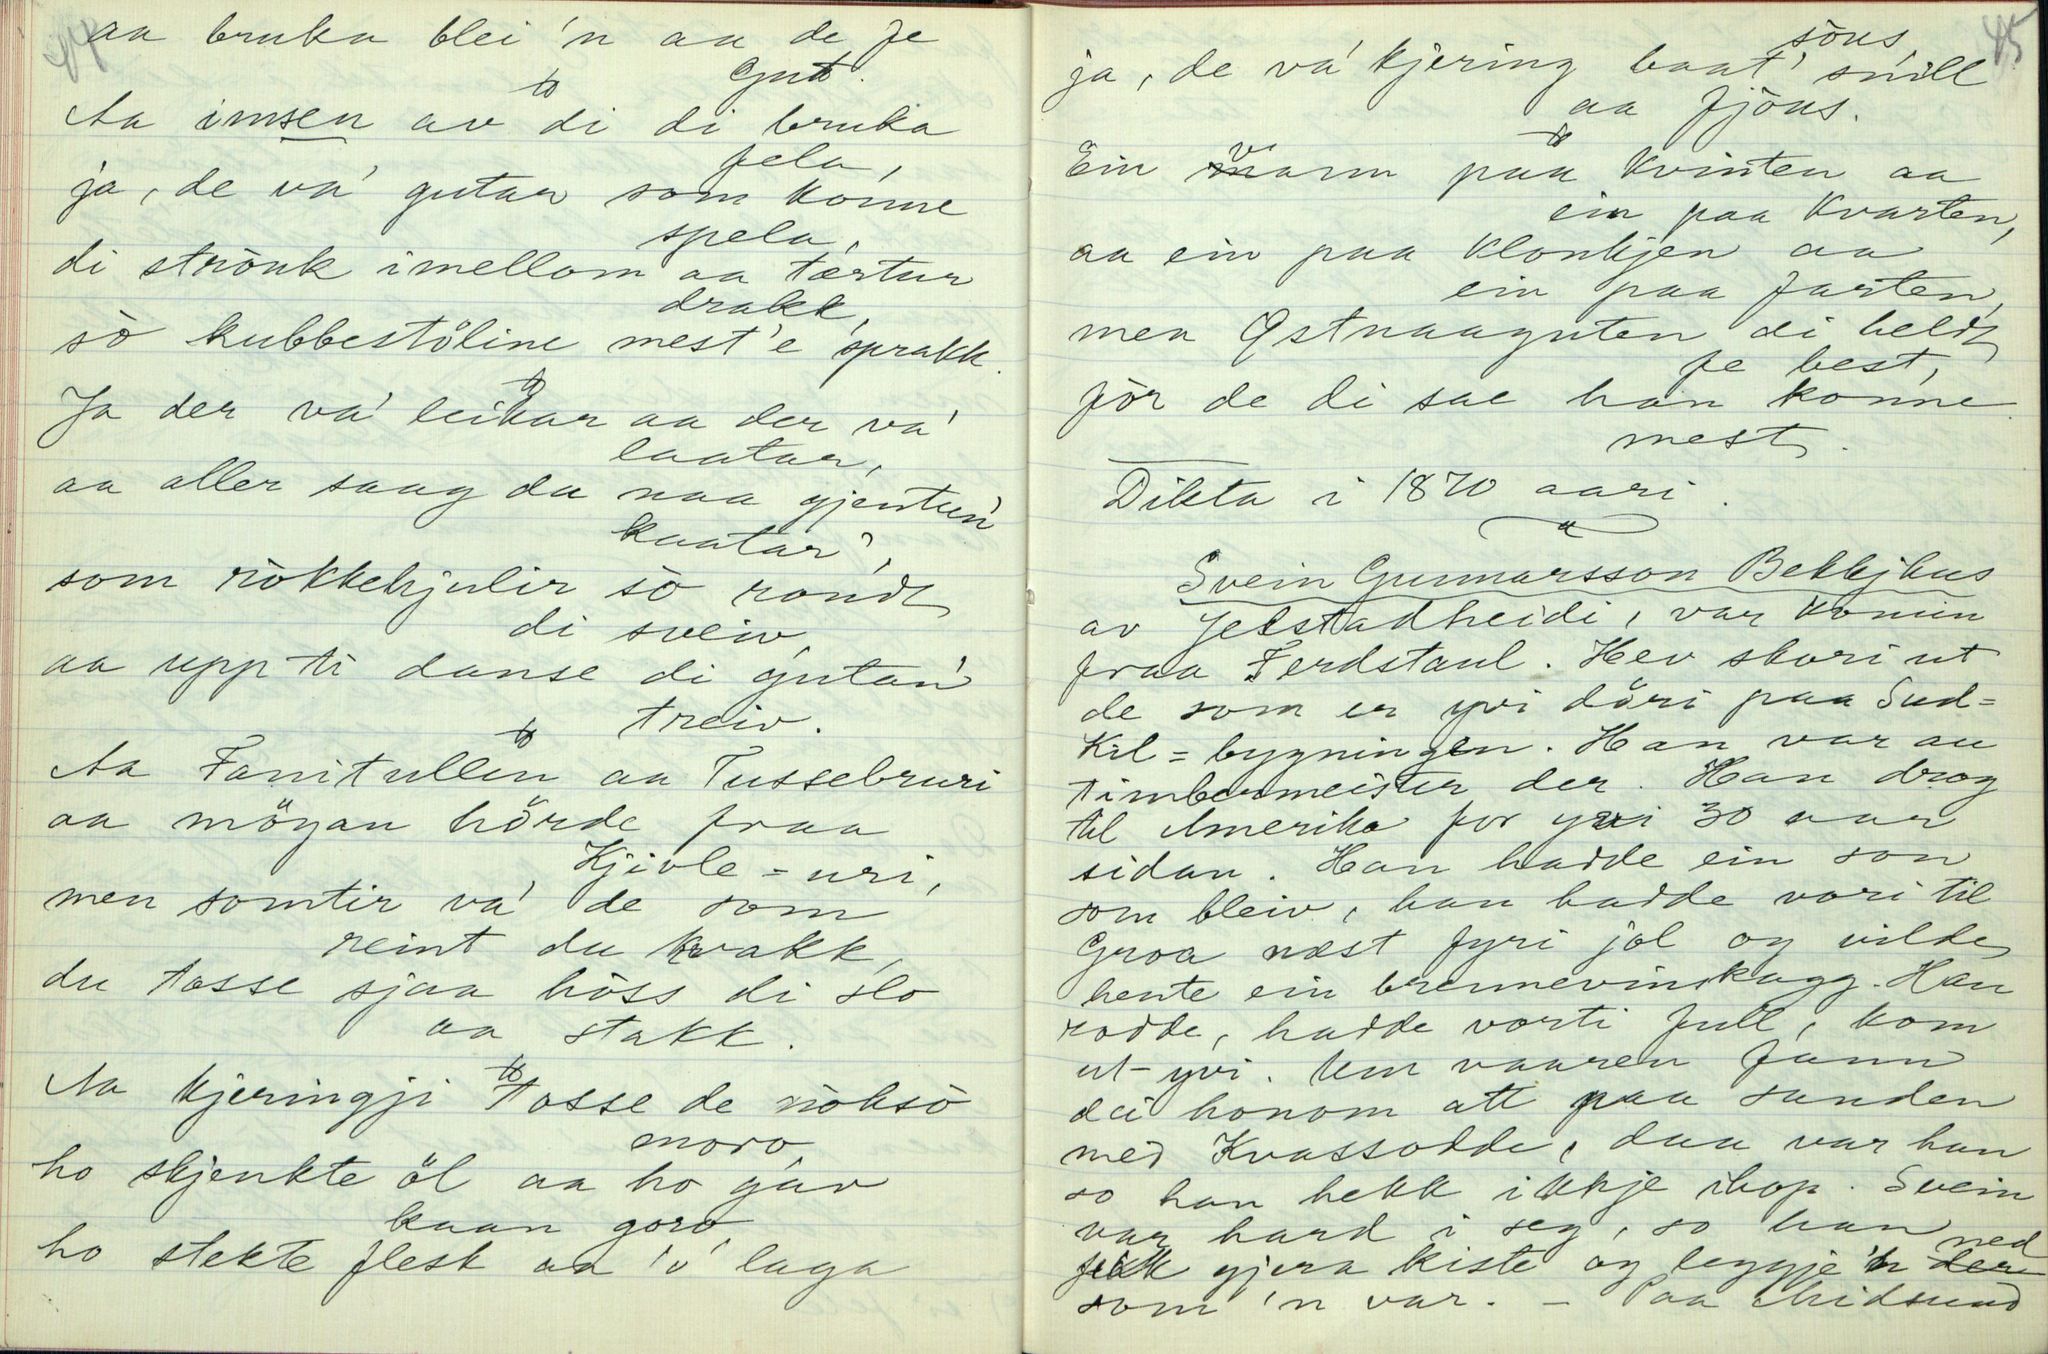 44
aa bruka blei 'n aa de fe
Gut.
Aa imsen av di di bruka
fela,
ja, de va' gutar som konne
spela,
di strönk imellom aa tærtur
drakk,
sò kubbestöline mest'e sprakk.
Ja der va' leikar aa der va'
laatar,
aa aller saag du naa gjentun'
kaatar',
som rökkehjulir sò rondt
di sveiv,
aa upp ti danse di gutan'
treiv.
Aa Fanitullen aa Tussebruri
aa möyan hörde fraa
Kjivle-uri,
men somtir va' de som
reint du kvakk,
du tosse sjaa höss di slo
aa stakk.
Aa kjeringji tosse de nòksò
moro,
ho skjenkte öl aa ho gav
kaan goro,
ho stekte flesk aa 'o' laga
45
ja, de va' kjering baat' snill
söns,
aa fjöns.
Ein varm paa Kvinten aa
ein paa Kvarten,
aa ein paa Klonkjen aa
ein paa farten,
men Østnaaguten di heldt
fe best,
för de di sae han konne
mest.
Dikta i 1870 aari.
Svein Gunnarsson Bekkjhus
av Jelstadheidi, var komin
fraa Ferdstaul. Hev skori ut
de som er yvi döri paa Sud-
Kil-bygningen. Han var au
timbermeister der. Han drog
til Amerika for yvi 30 aar
sidan. Han hadde ein son
som bleiv, han hadde vori til
Groa næst fyri jol og vilde
hente ein brennevinskagg. Han
rodde, hadde vorti full, kom
ut-yvi. Um vaaren fann
dei honom att paa sanden
med Kvassodde, daa var han
so han hekk ikkje ihop. Svein
var hard i seg, so han
fekk gjera kiste og leggje 'n der ned
som 'n var. - Paa Midsund